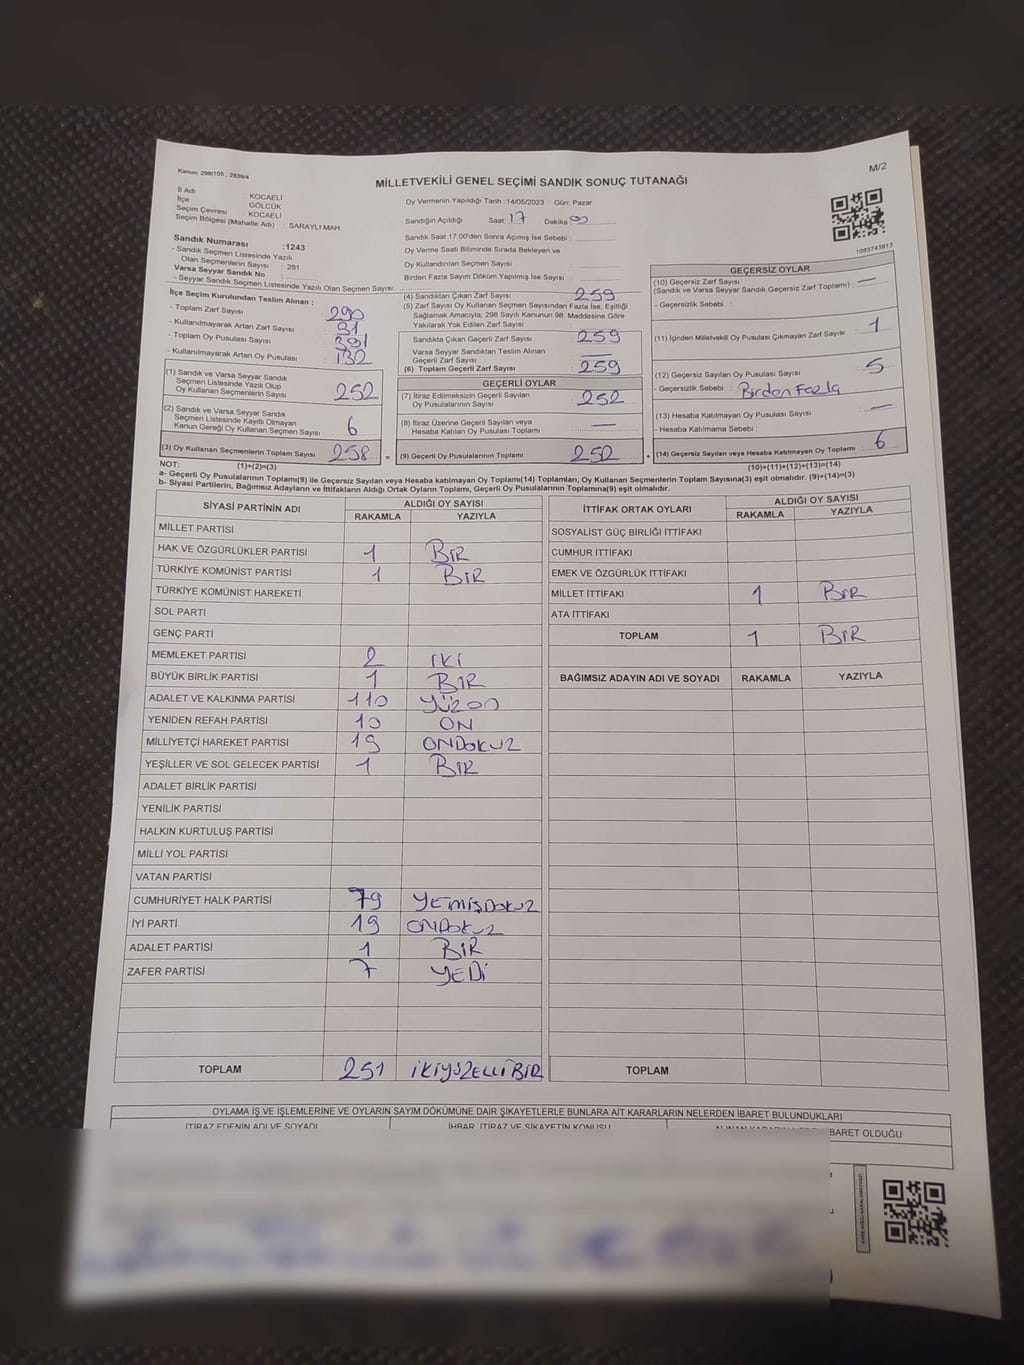 Kanun; 298/105 , 2839/4
M/2
MİLLETVEKİLİ GENEL SEÇİMİ SANDIK SONUÇ TUTANAĞI
İl Adı : KOCAELİ
İlçe : GÖLCÜK
Seçim Çevresi : KOCAELİ
Seçim Bölgesi (Mahalle Adı) : SARAYLI MAH
Sandık Numarası :1243
- Sandık Seçmen Listesinde Yazılı
Olan Seçmenlerin Sayısı : 281
Varsa Seyyar Sandık No :
- Seyyar Sandık Seçmen Listesinde Yazılı Olan Seçmen Sayısı:
İlçe Seçim Kurulundan Teslim Alınan ;
- Toplam Zarf Sayısı 290
- Kullanılmayarak Artan Zarf Sayısı 31
- Toplam Oy Pusulası Sayısı 391
- Kullanılmayarak Artan Oy Pusulası 132
(1) Sandık ve Varsa Seyyar Sandık
Seçmen Listesinde Yazılı Olup
Oy Kullanan Seçmenlerin Sayısı 252
(2) Sandık ve Varsa Seyyar Sandık
Seçmen Listesinde Kayıtlı Olmayan
Kanun Gereği Oy Kullanan Seçmen Sayısı 6
(3) Oy Kullanan Seçmenlerin Toplam Sayısı 258 =
Oy Vermenin Yapıldığı Tarih :14/05/2023 Gün: Pazar
Sandığın Açıldığı Saat: 17 Dakika 00
Sandık Saat 17:00'den Sonra Açımış İse Sebebi :
Oy Verme Saati Bitiminde Sırada Bekleyen ve
Oy Kullandırılan Seçmen Sayısı :
Birden Fazla Sayım Döküm Yapılmış İse Sayısı :
(4) Sandıktan Çıkan Zarf Sayısı 259
(5) Zarf Sayısı Oy Kullanan Seçmen Sayısından Fazla İse, Eşitliği
Sağlamak Amacıyla; 298 Sayılı Kanunun 98. Maddesine Göre
Yakılarak Yok Edilen Zarf Sayısı :
Sandıkta Çıkan Geçerli Zarf Sayısı 259
Varsa Seyyar Sandıktan Teslim Alınan
Geçerli Zarf Sayısı —
(6) Toplam Geçerli Zarf Sayısı 259
GEÇERLİ OYLAR
(7) İtiraz Edilmeksizin Geçerli Sayılan
Oy Pusulalarının Sayısı 252
(8) İtiraz Üzerine Geçerli Sayılan veya
Hesaba Katılan Oy Pusulası Toplamı —
(9) Geçerli Oy Pusulalarının Toplamı 252 +
1083743913
GEÇERSİZ OYLAR
(10) Geçersiz Zarf Sayısı
(Sandık ve Varsa Seyyar Sandık Geçersiz Zarf Toplamı) : —
- Geçersizlik Sebebi :
(11) İçinden Milletvekili Oy Pusulası Çıkmayan Zarf Sayısı 1
(12) Geçersiz Sayılan Oy Pusulası Sayısı 5
- Geçersizlik Sebebi : Birden Fazla
(13) Hesaba Katılmayan Oy Pusulası Sayısı —
- Hesaba Katılmama Sebebi :
(14) Geçersiz Sayılan veya Hesaba Katılmayan Oy Toplamı 6
NOT: (1)+(2)=(3) (10)+(11)+(12)+(13)=(14)
a- Geçerli Oy Pusulalarının Toplamı(9) ile Geçersiz Sayılan veya Hesaba katılmayan Oy Toplamı(14) Toplamları, Oy Kullanan Seçmenlerin Toplam Sayısına(3) eşit olmalıdır. (9)+(14)=(3)
b- Siyasi Partilerin, Bağımsız Adayların ve İttifakların Aldığı Ortak Oyların Toplamı, Geçerli Oy Pusulalarının Toplamına(9) eşit olmalıdır.
SİYASİ PARTİNİN ADI ALDIĞI OY SAYISI
RAKAMLA YAZIYLA
MİLLET PARTİSİ
HAK VE ÖZGÜRLÜKLER PARTİSİ 1 BİR
TÜRKİYE KOMÜNİST PARTİSİ 1 BİR
TÜRKİYE KOMÜNİST HAREKETİ
SOL PARTİ
GENÇ PARTİ
MEMLEKET PARTİSİ 2 İKİ
BÜYÜK BİRLİK PARTİSİ 1 BİR
ADALET VE KALKINMA PARTİSİ 110 YÜZON
YENİDEN REFAH PARTİSİ 10 ON
MİLLİYETÇİ HAREKET PARTİSİ 19 ONDOKUZ
YEŞİLLER VE SOL GELECEK PARTİSİ 1 BİR
ADALET BİRLİK PARTİSİ
YENİLİK PARTİSİ
HALKIN KURTULUŞ PARTİSİ
MİLLİ YOL PARTİSİ
VATAN PARTİSİ
CUMHURİYET HALK PARTİSİ 79 YEMİŞDOKUZ
İYİ PARTİ 19 ONDOKUZ
ADALET PARTİSİ 1 BİR
ZAFER PARTİSİ 7 YEDİ
TOPLAM 251 İKİYÜZELLİBİR
İTTİFAK ORTAK OYLARI ALDIĞI OY SAYISI
RAKAMLA YAZIYLA
SOSYALİST GÜÇ BİRLİĞİ İTTİFAKI
CUMHUR İTTİFAKI
EMEK VE ÖZGÜRLÜK İTTİFAKI
MİLLET İTTİFAKI 1 BİR
ATA İTTİFAKI
TOPLAM 1 BİR
BAĞIMSIZ ADAYIN ADI VE SOYADI RAKAMLA YAZIYLA
TOPLAM
OYLAMA İŞ VE İŞLEMLERİNE VE OYLARIN SAYIM DÖKÜMÜNE DAİR ŞİKAYETLERLE BUNLARA AİT KARARLARIN NELERDEN İBARET BULUNDUKLARI
İTİRAZ EDENİN ADI VE SOYADI İHBAR, İTİRAZ VE ŞİKAYETİN KONUSU ALINAN KARARIN BARET OLDUĞU